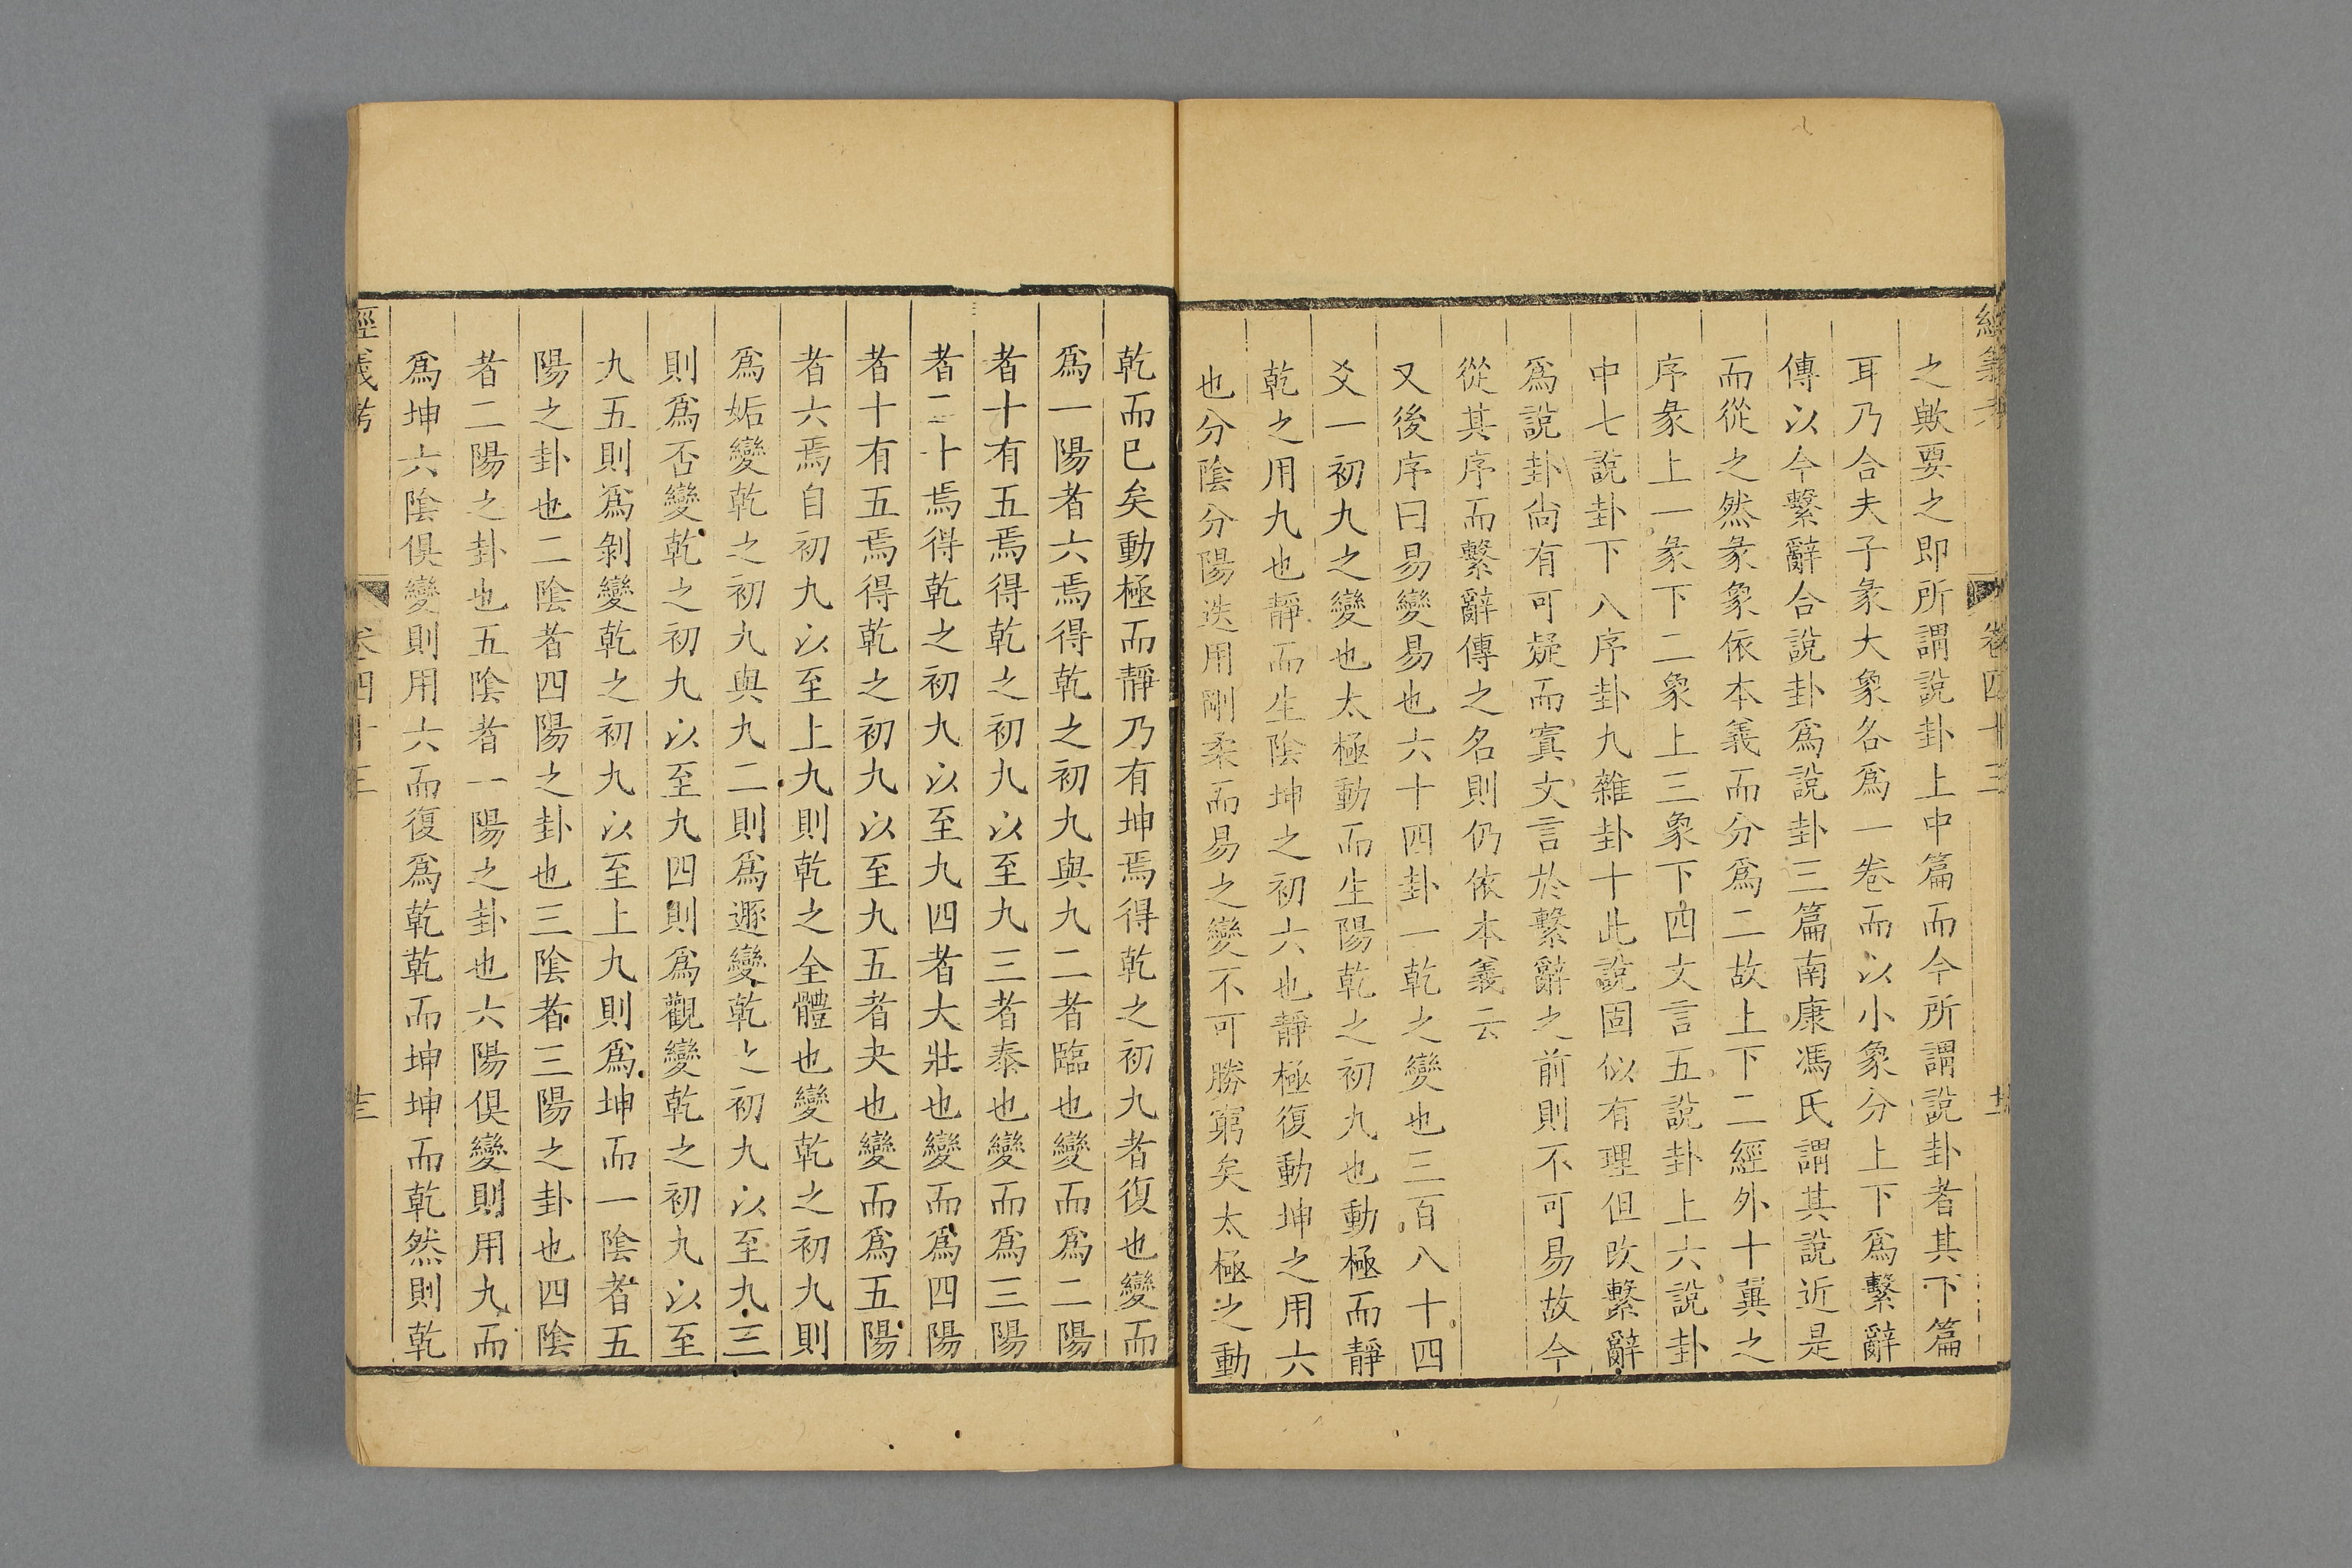 經義考 卷四十三
之歟要之即所謂說卦上中篇而今所謂說卦者其下篇
耳乃合夫子彖大象各爲一卷而以小象分上下爲繫辭
傳以今繫辭合說卦爲說卦三篇南康馮氏謂其說近是
而從之然彖象依本義而分爲二故上下二經外十翼之
序彖上一彖下二象上三象下四文言五說卦上六說卦
中七說卦下八序卦九雜卦十此說固似有理但改繫辭
爲說卦尙有可疑而寘文言於繫辭之前則不可易故今
從其序而繫辭傳之名則仍依本義云
又後序曰易變易也六十四卦一乾之變也三百八十四
爻一初九之變也太極動而生陽乾之初九也動極而靜
乾之用九也靜而生陰坤之初六也靜極復動坤之用六
也分陰分陽迭用剛柔而易之變不可勝窮矣太極之動
乾而已矣動極而靜乃有坤焉得乾之初九者復也變而
爲一陽者六焉得乾之初九與九二者臨也變而爲二陽
者十有五焉得乾之初九以至九三者泰也變而爲三陽
者二十焉得乾之初九以至九四者大壯也變而爲四陽
者十有五焉得乾之初九以至九五者夬也變而爲五陽
者六焉自初九以至上九則乾之全體也變乾之初九則
爲姤變乾之初九與九二則爲遯變乾之初九以至九三
則爲否變乾之初九以至九四則爲觀變乾之初九以至
九五則爲剝變乾之初九以至上九則爲坤而一陰者五
陽之卦也二陰者四陽之卦也三陰者三陽之卦也四陰
者二陽之卦也五陰者一陽之卦也六陽俱變則用九而
爲坤六陰俱變則用六而復爲乾乾而坤坤而乾然則乾
經義考 卷四十三